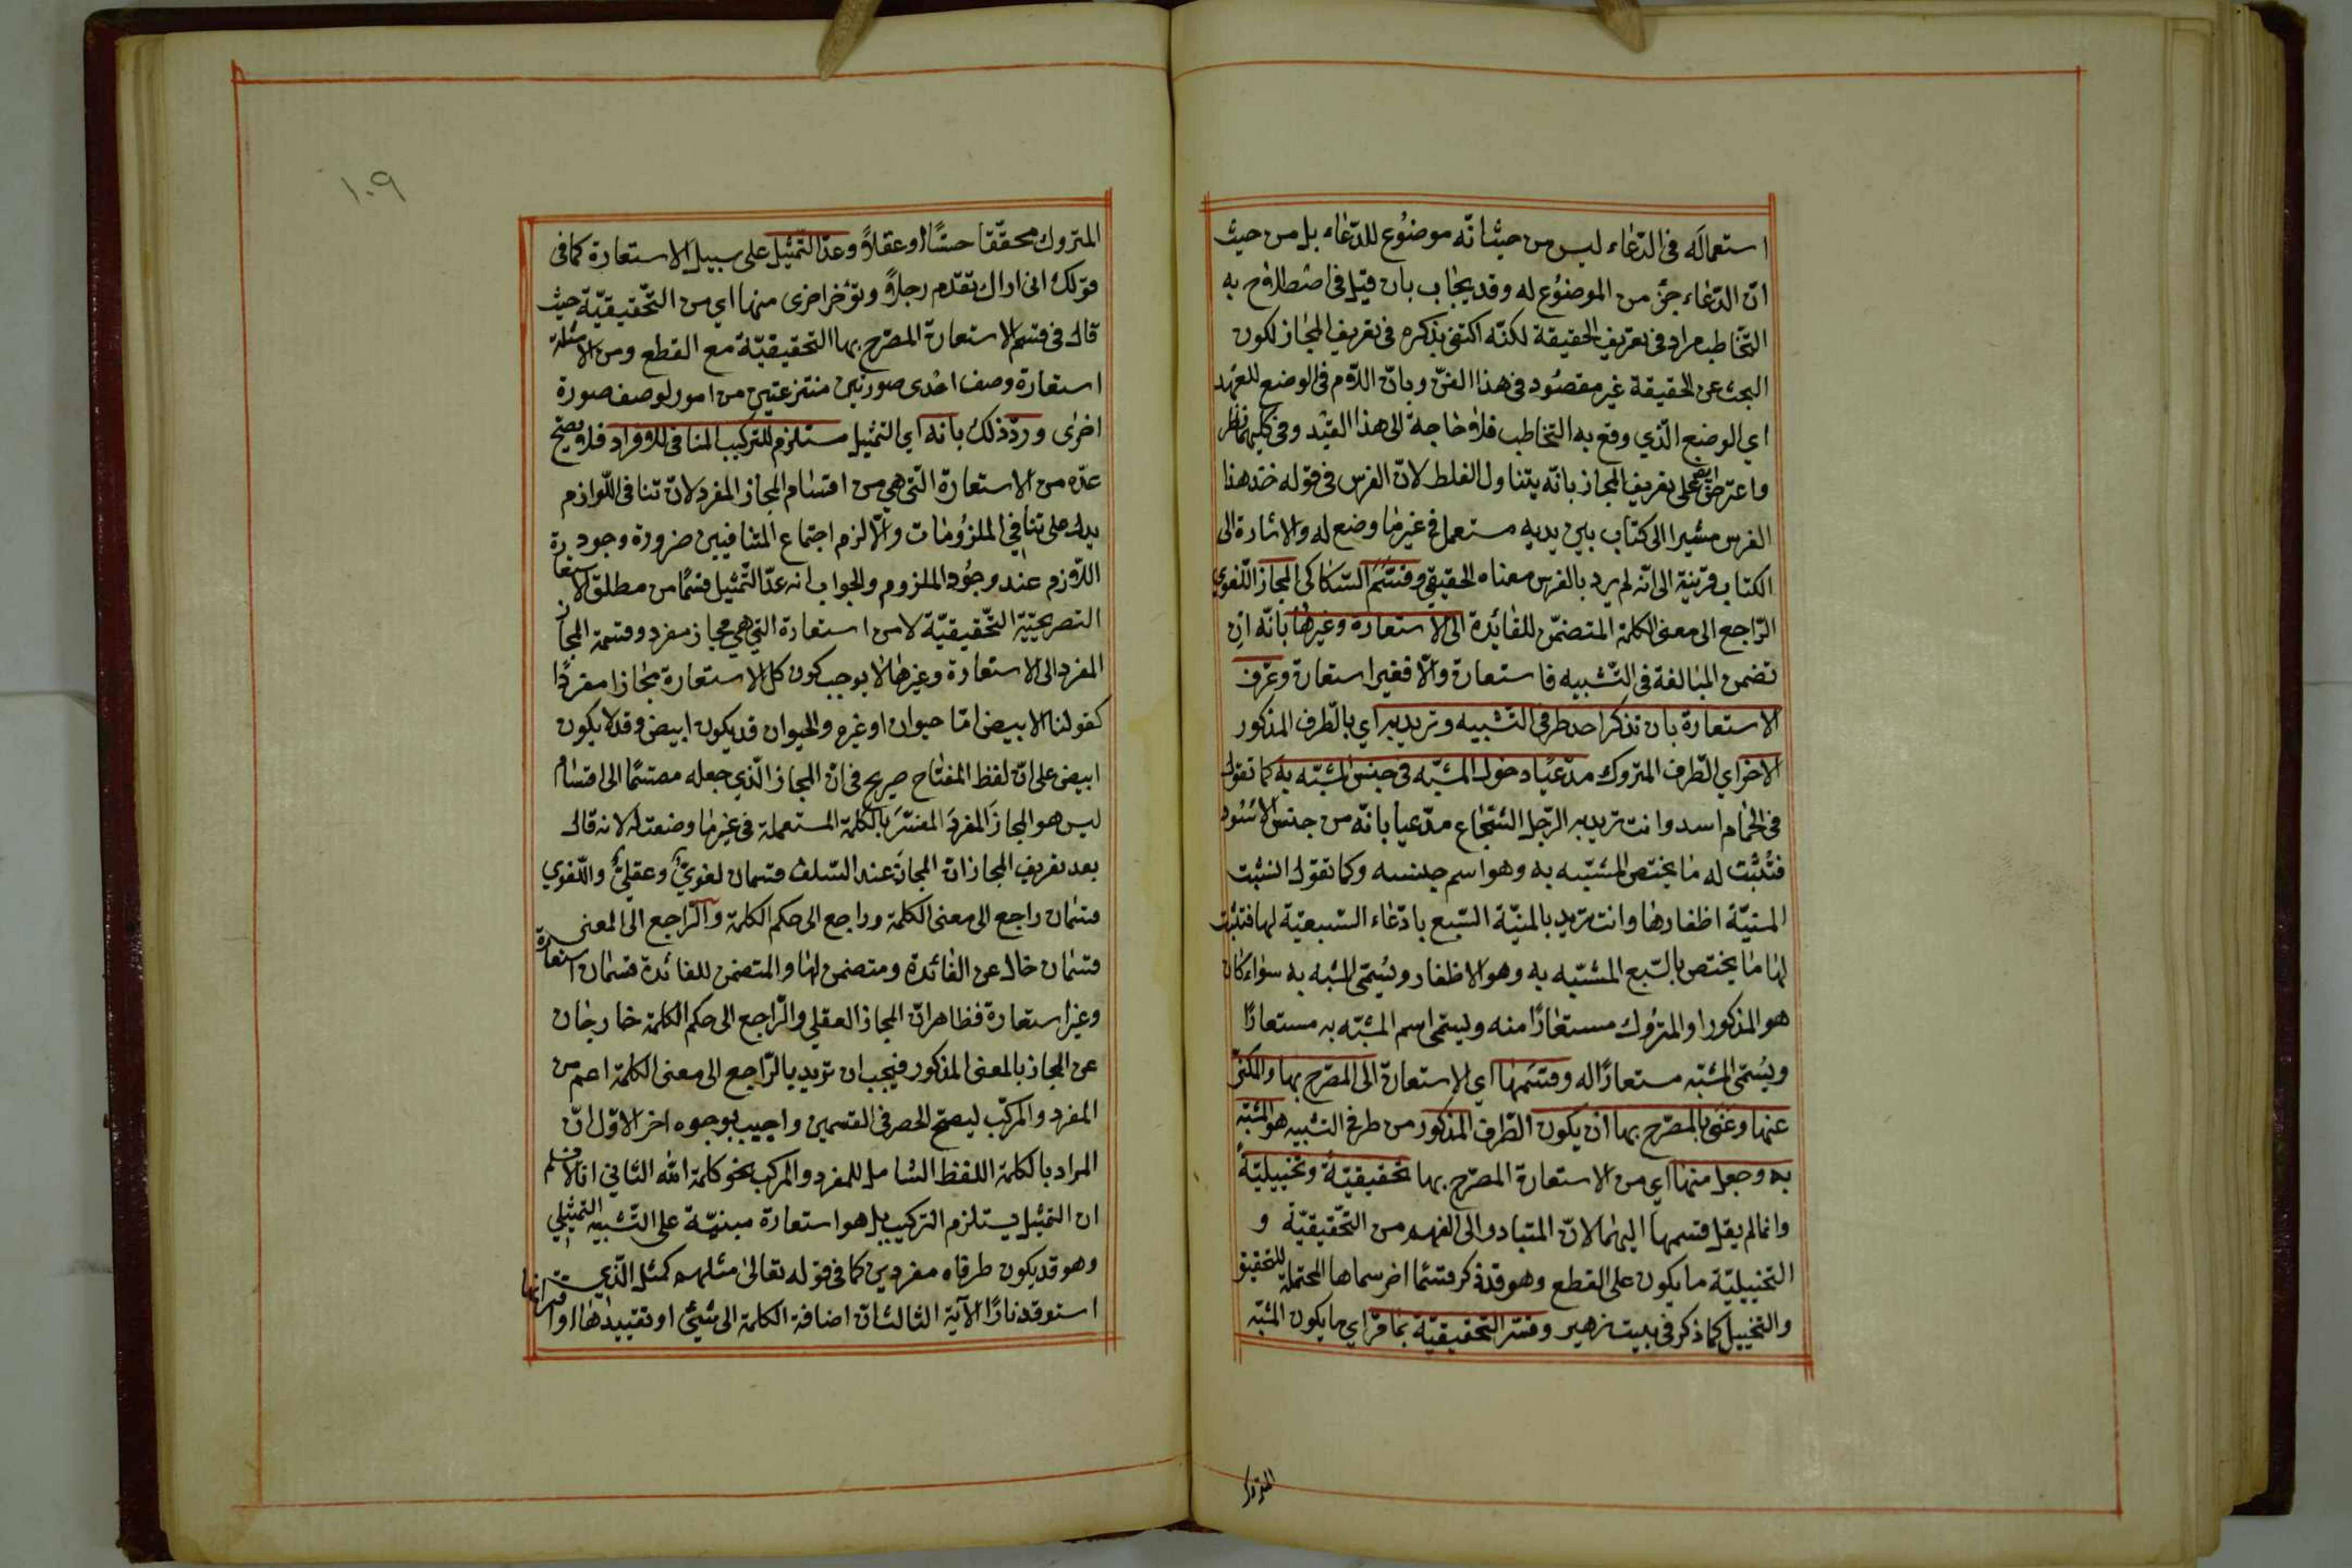 استعماله فى الدّعاء ليس من حيث انّه موضوع للدّعاء بل من حيث
انّ الدّعاء جزء من الموضوع له وقد يجاب بان قيل فى اصطلاح به
التّخاطب مراد فى تعريف الحقيقة لكنّه اكتفى بذكره فى تعريف المجاز لكون
البحث عن الحقيقة غير مقصود فى هذا الفنّ وبانّ اللّام فى الوضع للعهد
اي الوضع الّذي وقع به التخاطب فلا حاجة الى هذا القيد وفى كليهما نظر
واعترض ايضا على تعريف المجاز بانّه يتناول الغلط لانّ الفرس فى قوله خذ هذا
الفرس مشيرا الى كتاب بين يديه مستعمل فى غير ما وضع له والاشارة الى
الكتاب قرينة الى انّه لم يرد بالفرس معناه الحقيقي وقسّم السّكاكى المجاز اللّغوي
الرّاجع الى معنى الكلمة المتضمّن للفائدة الى الاستعارة وغيرها بانّه ان
تضمن المبالغة فى التّشبيه فاستعارة والّا فغير استعارة وعرّف
الاستعارة بان تذكر احد طرفى التّشبيه وتريد به اي بالطّرف المذكور
الاخر اي الطّرف المتروك مدّعيا دخول المشبّه فى جنس المشبّه به كما تقول
فى الحمام اسد وانت تريد به الرّجل الشّجاع مدّعيا بانّه من جنس الاسود
فتثبت له ما يختصّ المشبّه به وهو اسم جنسه وكما تقول انشبت
المنيّة اظفارها وانت تريد بالمنيّة السّبع بادّعاء السّبعيّة لها فتثبت
لها ما يختص بالسّبع المشبّه به وهو الاظفار ويسمّى المشبه به سواء كان
هو المذكور او المتروك مستعارًا منه ويسمّى اسم المشبّه به مستعارًا
ويسمّى المشبّه مستعارًا له وقسّمها اي الاستعارة الى المصرّح بها والمكنّى
عنها وعنى بالمصرّح بها ان يكون الطّرف المذكور من طرفى التشبيه هو المشبّه
به وجعل منها اي من الاستعارة المصرّح بها تحقيقيّة وتخييليّة
وانما لم يقل قسمها اليهما لانّ المتبادر الى الفهم من التّحقيقيّة و
التخييليّة ما يكون على القطع وهو قد ذكر قسمًا اخر سماها المحتملة للتحقيق
والتخييل كما ذكر فى بيت زهير وفسّر التحقيقيّة بما مرّ اي ما يكون المشبّه
المتروك
١٠٩
المتروك محقّقا حسًّا او عقلاً وعدّ التّمثيل على سبيل الاستعارة كما فى
قولك انى اراك تقدّم رجلاً وتؤخر اخرى منها اي من التّحقيقيّة حيث
قال فى قسم الاستعارة المصرّح بها التحقيقيّة مع القطع ومن الامثلة
استعارة وصف احدى صورتين منتزعتين من امور لوصف صورة
اخرى وردّ ذلك بانه اي التمثيل مستلزم للتركيب المنافى للافراد فلا يصحّ
عدّه من الاستعارة الّتى هى من اقسام المجاز المفرد لانّ تنافى اللّوازم
يدل على تنافي الملزومات والّا لزم اجتماع المتنافيين ضرورة وجود
اللّازم عند وجود الملزوم والجواب انه عدّ التّمثيل قسمًا من مطلق الاستعارة
التصريحيّة التّحقيقيّة لا من استعارة التى هي مجاز مفرد وقسمة المجاز
المفرد الى الاستعارة وغيرها لا يوجب كون كل الاستعارة مجازا مفردًا
كقولنا الابيض امّا حيوان او غيره والحيوان قد يكون ابيض وقد لا يكون
ابيض على انّ لفظ المفتاح صريح فى انّ المجاز الّذي جعله مقسمًا الى اقسام
ليس هو المجاز المفرد المفسّر بالكلمة المستعملة فى غير ما وضعت له لانه قال
بعد تعريف المجاز انّ المجاز عند السّلف قسمان لغويّ وعقليّ واللّغوي
قسمان راجع الى معنى الكلمة وراجع الى حكم الكلمة والرّاجع الى المعنى
قسمان خال عن الفائدة ومتضمن لها والمتضمن للفائدة قسمان استعارة
وغير استعارة فظاهر انّ المجاز العقلي والرّاجع الى حكم الكلمة خارجان
عن المجاز بالمعنى المذكور فيجب ان تريد بالرّاجع الى معنى الكلمة اعم من
المفرد والمركّب ليصحّ الحصر فى القسمين واجيب بوجوه اخر الاوّل انّ
المراد بالكلمة اللفظ الشامل للمفرد والمركب نحو كلمة الله الثاني انا لا نسلم
ان التمثيل يستلزم التركيب بل هو استعارة مبنيّة على التّشبيه التمثيلي
وهو قد يكون طرفاه مفردين كما فى قوله تعالى مثلهم كمثل الّذي
استوقد نارًا الآية الثالث انّ اضافة الكلمة الى شيئ او تقييدها او اقترانها